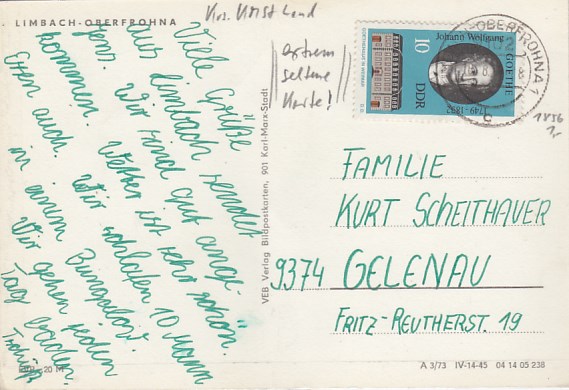 LIMBACH-OBERFROHNA
Krs. Land
extrem
seltene
Karte!
Viele Grüße
aus Limbach sendet
Jens. Wir sind gut ange-
kommen. Wetter ist sehr schön.
Eben auch. Wir schlafen 10 Mann
in einem Bungalow.
Wir gehen jeden
Tag baden.
VEB Verlag Bildpostkarten, 901 Karl-Marx-Stadt
Johann Wolfgang
GOETHE
1749-1832
10
DDR
-OBERFROHNA 1
1856
1,-
FAMILIE
KURT SCHEITHAUER
9374 GELENAU
FRITZ-REUTHERST. 19
20 M
A 3/73 IV-14-45 04 14 05 238